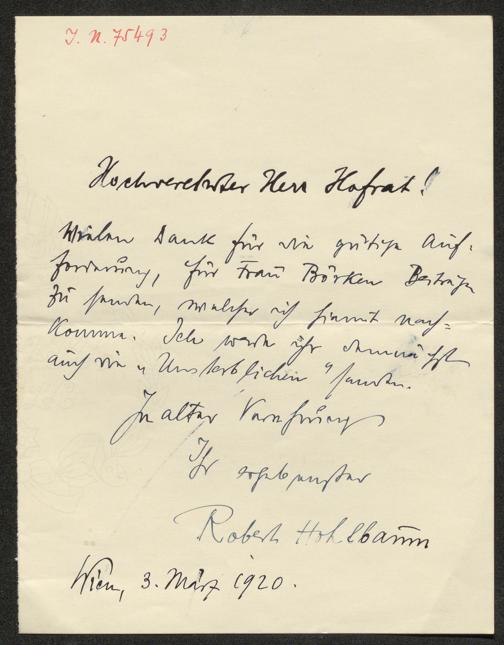 I. N. 75493
Hochverehrter Herr Hofrat!
Vielen Dank für die gütige Auf-
forderung, für Frau Börken Beiträge
zu senden, welcher ich hiemit nach-
komme. Ich werde ihr demnächst
auch die „Unsterblichen" senden.
In alter Verehrung
Ihr ergebenster
Robert Hohlbaum
Wien, 3. März 1920.